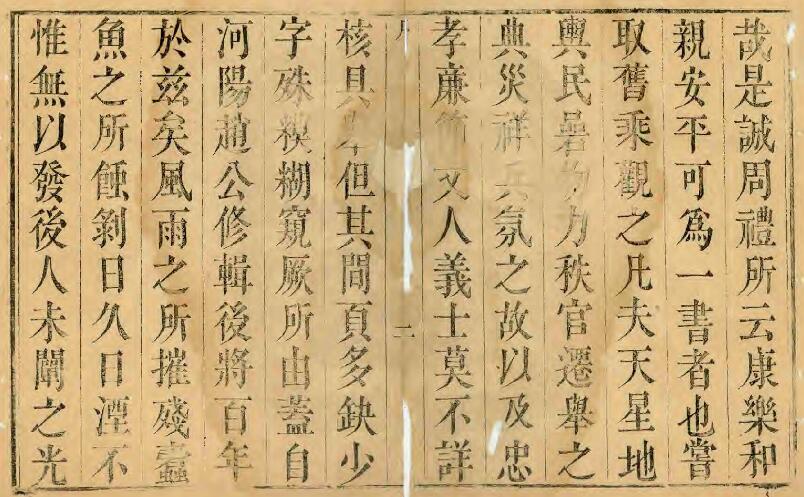 哉是誠周禮所云康樂和
親安平可爲一書者也嘗
取舊乘觀之凡夫天星地
輿民碞物力秩官遷舉之
典災祥兵氛之故以及忠
孝廉節文人義士莫不詳
二
核具但其間頁多缺少
字殊糢糊窺厥所由蓋自
河陽趙公修輯後將百年
於茲矣風雨之所摧殘蠹
魚之所蝕剝日久日湮不
惟無以發後人未闡之光